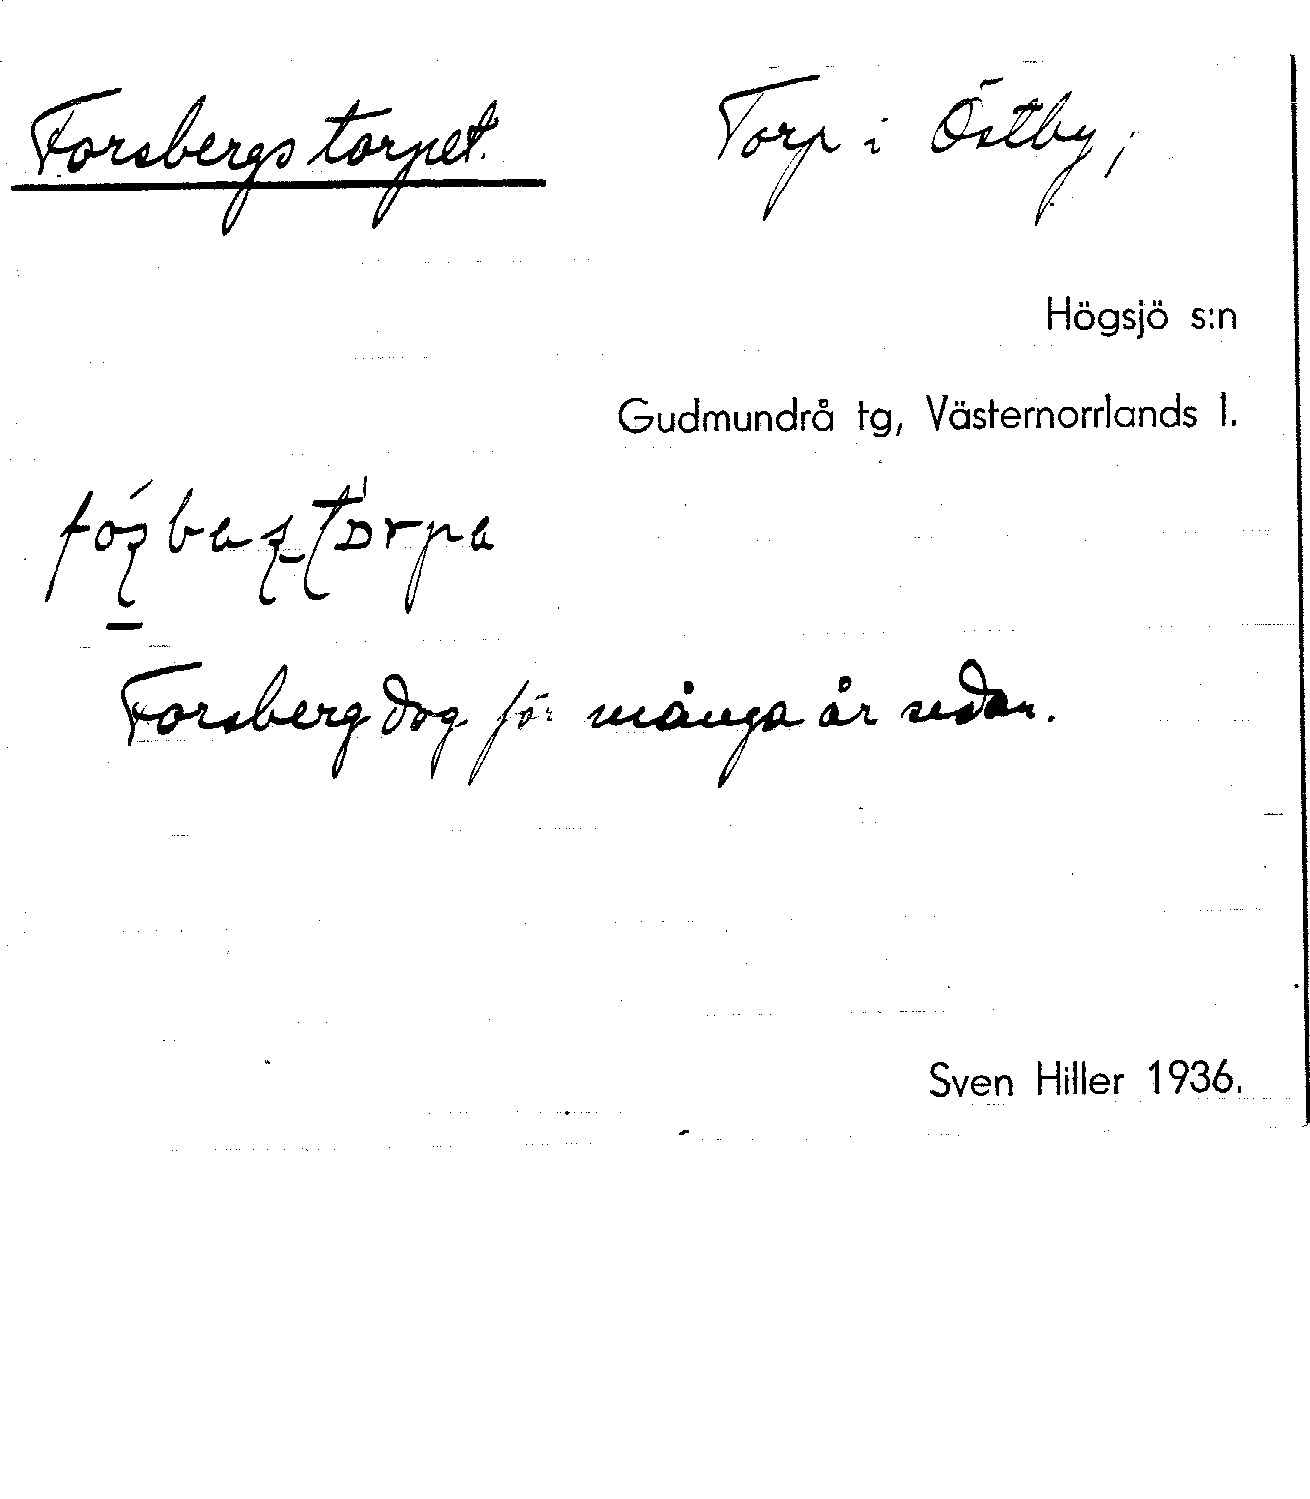 Forsbergstorpet. Torp i Östby,
Högsjö s:n
Gudmundrå tg, Västernorrlands l.
Forsberg dog för många år sedan.
Sven Hiller 1936.